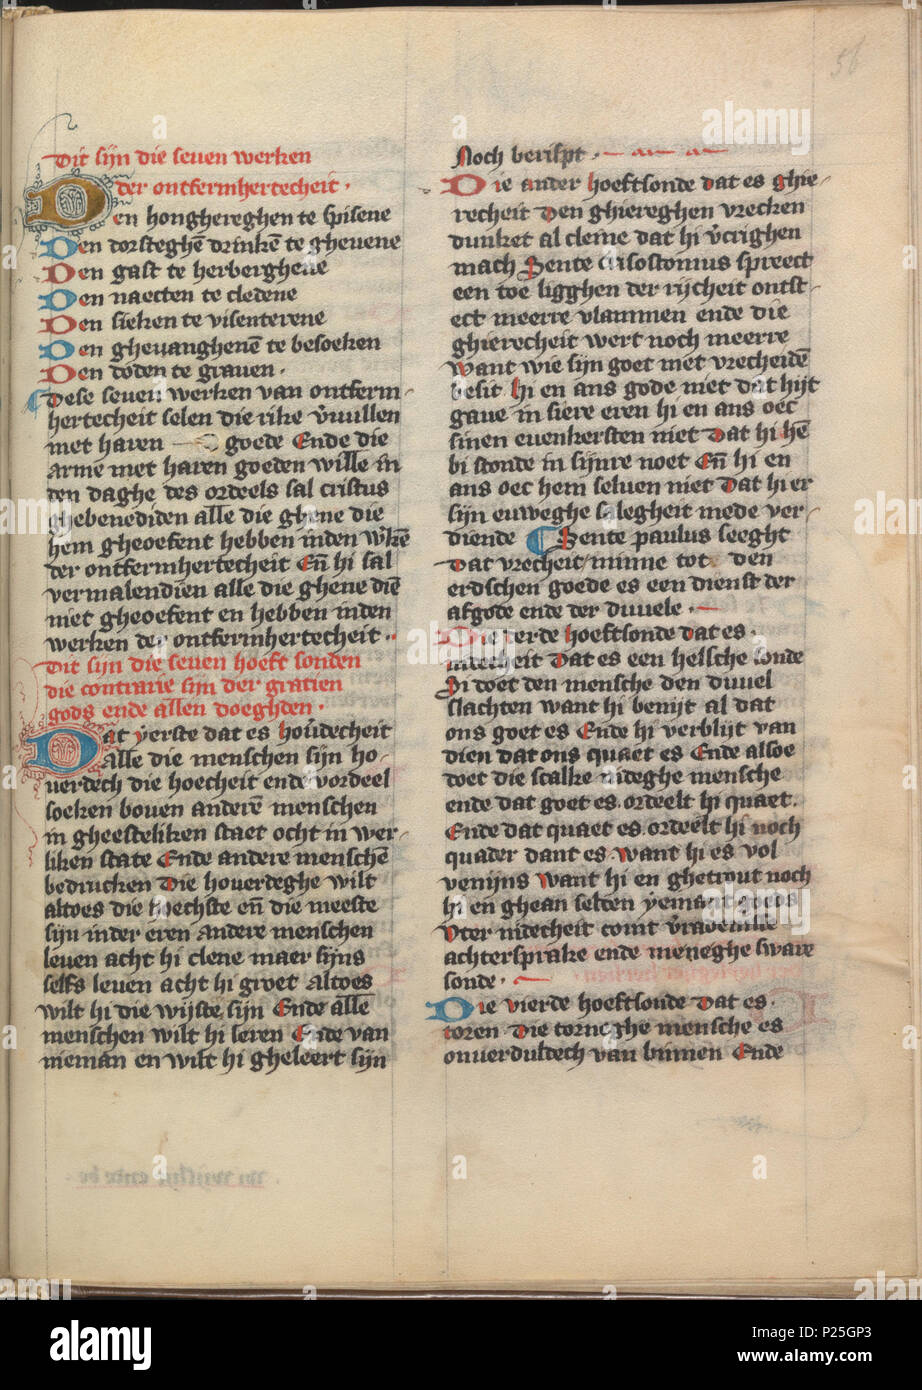 56
Dit sijn die seuen werken
der ontfermhertecheit·
Den honghereghen te spisene
Den dorsteghē drinkē te gheuene
Den gast te herberghene
Den naecten te cledene
Den sieken te visenterene
Den gheuanghenē te besoeken
Den doden te grauen·
Dese seuen werken van ontferm-
hertecheit selen die rike v̄uullen
met haren goede Ende die
arme met haren goeden wille in
den daghe des ordeels sal cristus
ghebenediden alle die ghene die
hem gheoefent hebben inden w̄kē
der ontfermhertecheit Eñ hi sal
vermalendien alle die ghene diē
niet gheoefent en hebben inden
werken der ontfermhertecheit·
Dit sijn die seuen hoeft sonden
die contrarie sijn der gratien
gods ende allen doeghden·
Dat yerste dat es hoūdecheit
Alle die menschen sijn ho-
uerdech die hoecheit ende vordeel
soeken bouen anderē menschen
in gheesteliken staet ocht in wer-
liken state Ende andere menschē
bedrucken Die houerdeghe wilt
altoes die hoechste eñ die meeste
sijn inder eren andere menschen
leuen acht hi clene maer sijns
selfs leuen acht hi groet Altoes
wilt hi die wijste sijn Ende allē
menschen wilt hi leren Ende van
nieman en wilt hi gheleert sijn
Noch berispt·
Die ander hoeftsonde dat es ghie-
recheit Den ghiereghen vrecken
dunket al cleine dat hi v̄crighen
mach Sente Crisostomus spreect
een toe ligghen der rijcheit ontst-
ect meerre vlammen ende die
ghierecheit wert noch meerre
want wie sijn goet met vrecheidē
besit hi en ans gode niet dat hijt
gaue in siere eren hi en ans oec
sinen euenkersten niet Dat hi hē
bi stonde in sijnre noet Eñ hi en
ans oec hem seluen niet Dat hi er
sijn euweghe salegheit mede ver-
diende Sente paulus seeght
Dat vrecheit minne tot den
erdschen goede es een dienst der
afgode ende der duuele·
Die derde hoeftsonde dat es·
nidecheit Dat es een helsche sonde
Si doet den mensche den duuel
slachten want hi benijt al dat
ons goet es Ende hi verblijt van
dien dat ons quaet es Ende alsoe
doet die scalke nideghe mensche
ende dat goet es ordeelt hi quaet.
Ende dat quaet es ordeelt hi noch
quader dant es want hi es vol
venijns want hi en ghetrout noch
hi en ghean selden yemant goeds
Vter nidecheit comt
achtersprake ende meneghe sware
sonde·
Die vierde hoeftsonde Dat es·
toren Die torneghe mensche es
onuerduldech van binnen Ende
alamy
P25GP3